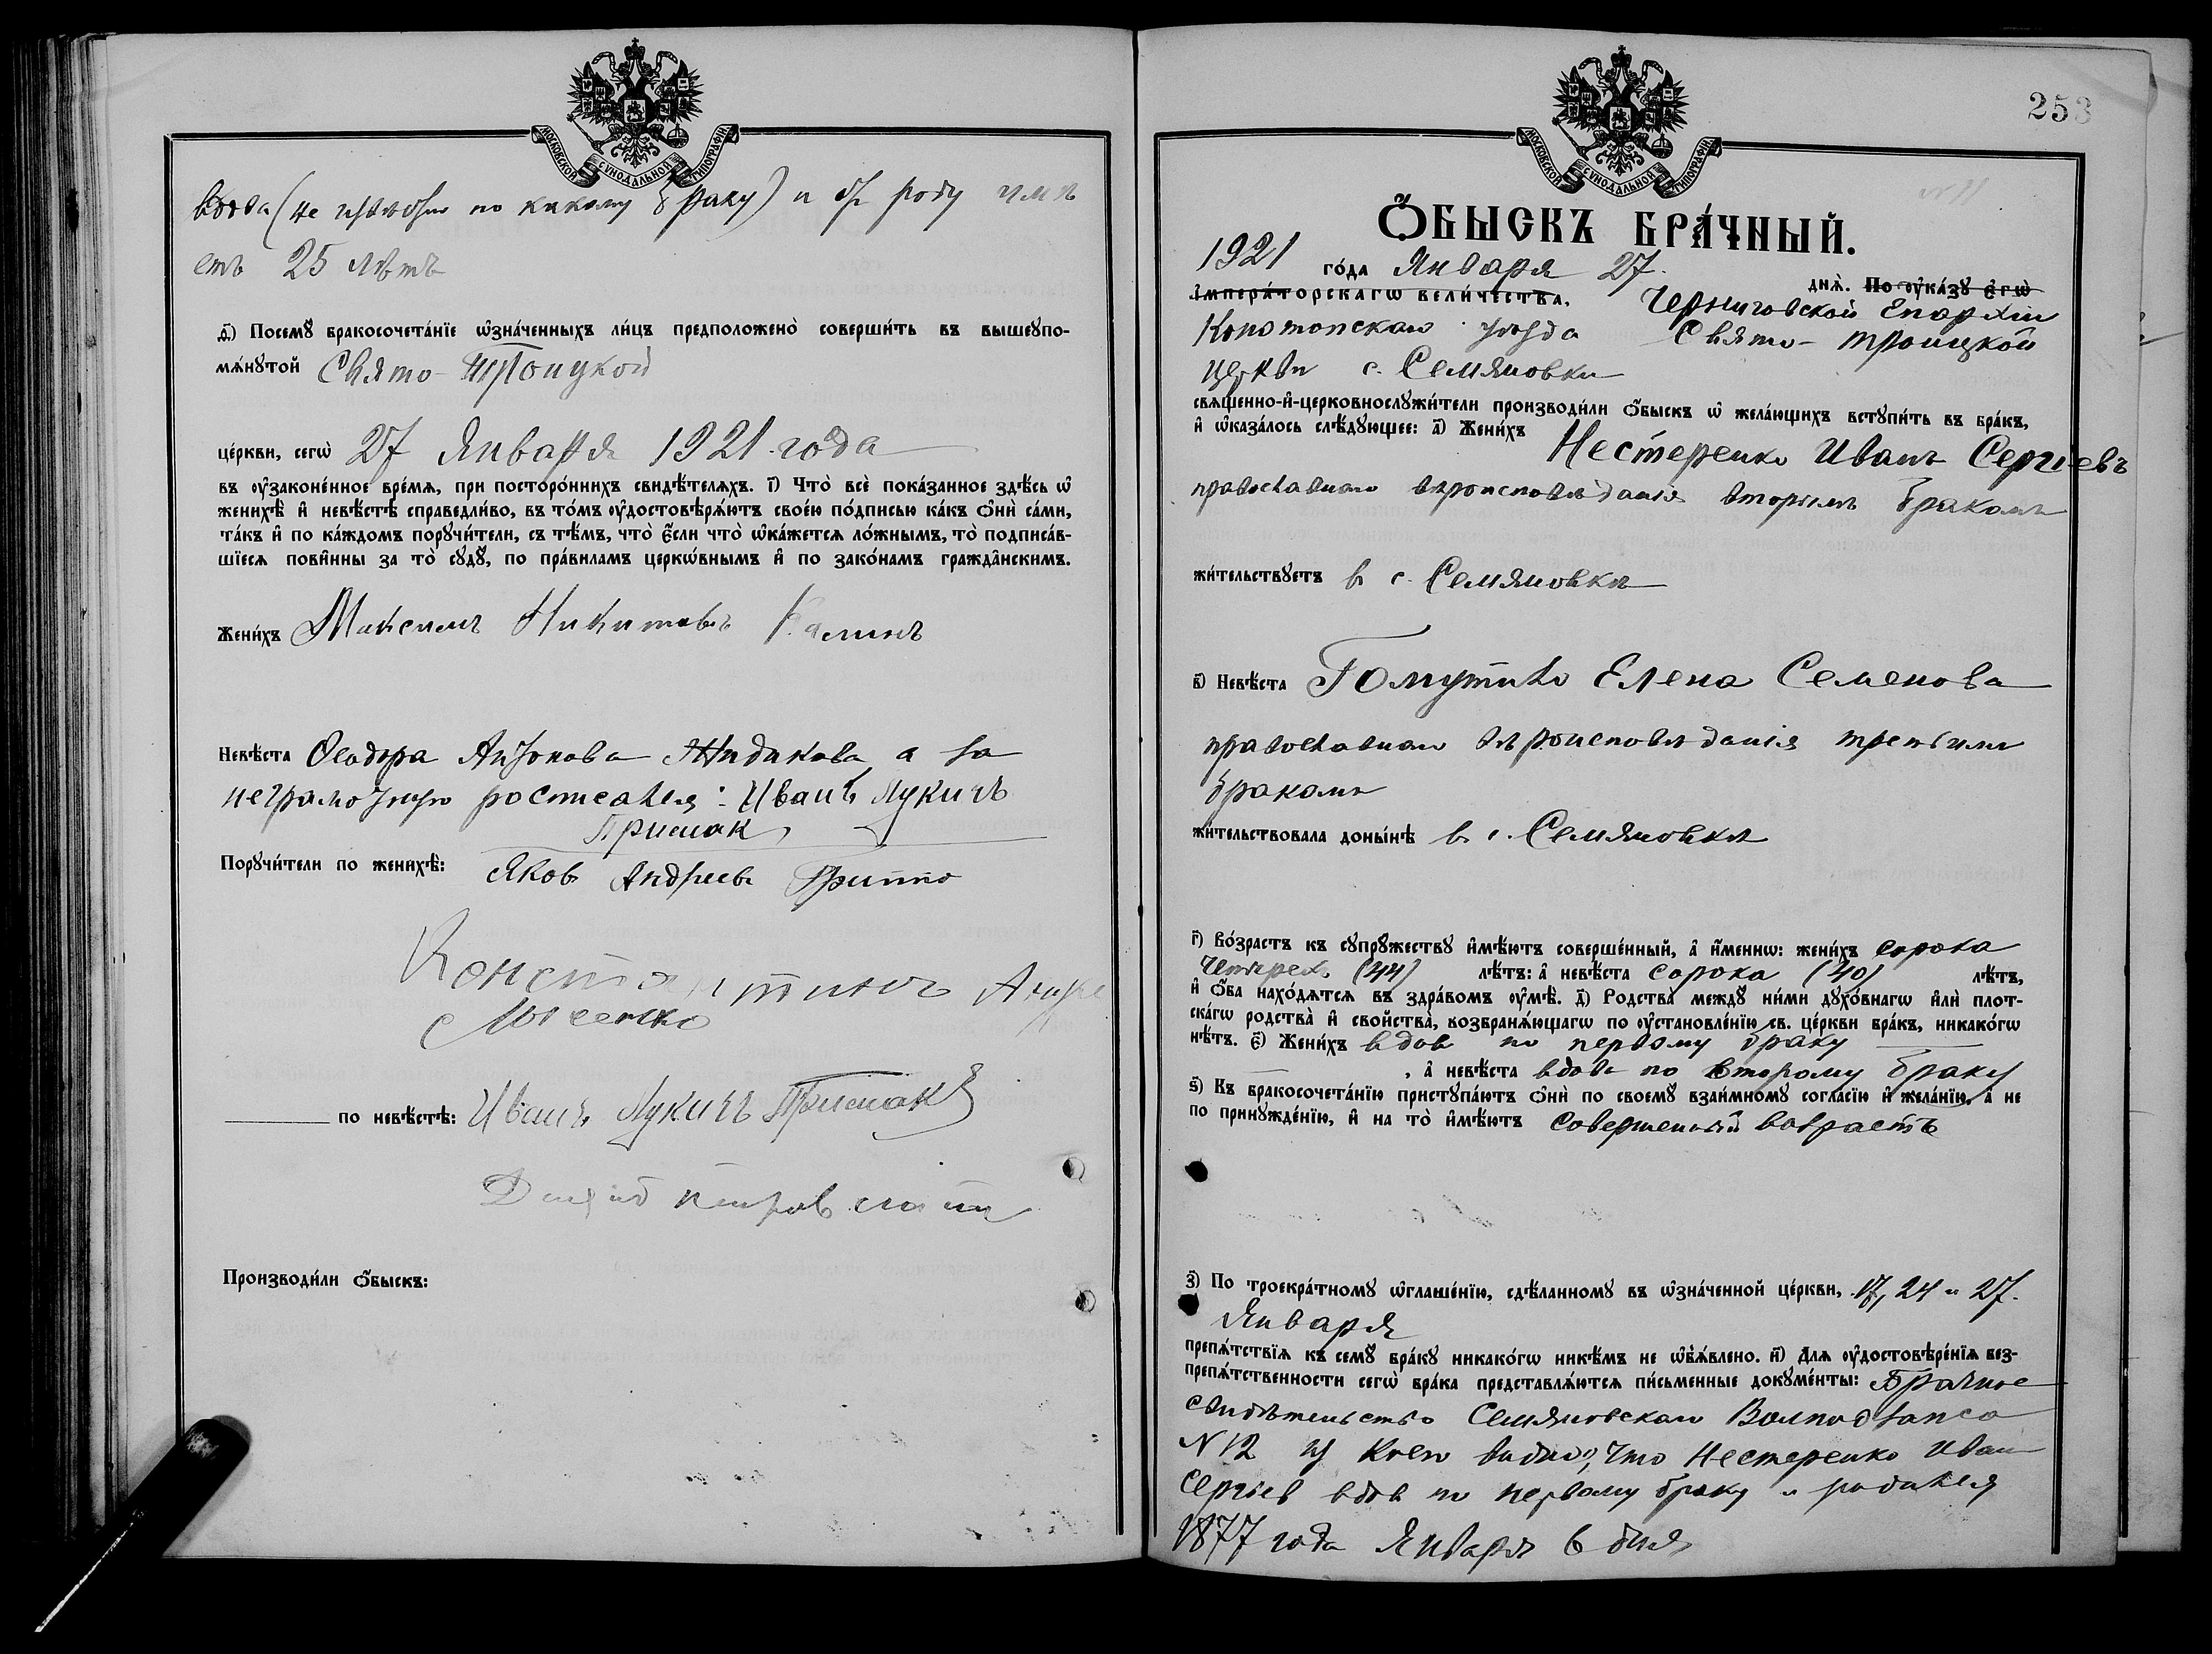 МОСКОВСКОЙ СѴНОДАЛЬНОЙ ТИПОГРАФІИ
вдова (не извѣстно по какому браку) и отъ роду имѣ
етъ 25 лѣтъ
д҃) Посемꙋ̀ бракосочета́нїе ѡ҆зна́ченныхъ ли́цъ предположено̀ соверши́ть въ вышеꙋпо-
мѧ́нꙋтой Свято-Троицкой
це́ркви, сегѡ̀ 27 Января 1921 года
въ ᲂу҆законе́нное вре́мѧ, при посторо́ннихъ свидѣ́телѧхъ. і҃) Что̀ всѐ пока́занное здѣ́сь ѡ҆
женихѣ̀ и҆ невѣ́стѣ справедли́во, въ то́мъ ᲂу҆достовѣрѧ́ютъ свое́ю по́дписью ка́къ ѻ҆нѝ са́ми,
та́къ и҆ по ка́ждомъ порꙋчи́тели, съ тѣ́мъ, что̀ є҆́сли что̀ ѡ҆ка́жетсѧ ло́жнымъ, то̀ подписа́в-
шїесѧ пови́нны за то̀ сꙋдꙋ̀, по пра́виламъ церкѡ́внымъ и҆ по зако́намъ гражда́нскимъ.
Жени́хъ Максимъ Никитовъ Калинъ
Невѣ́ста Ѳеодора Антонова Жидкова а за
неграмотную росписался: Иванъ Лукичъ
Присмак
Порꙋчи́тели по женихѣ̀: Яков Андреев
Константинъ
по невѣ́стѣ: Иванъ Лукичъ Присмак
Производи́ли ѻ҆́быскъ:
253
МОСКОВСКОЙ СѴНОДАЛЬНОЙ ТИПОГРАФІИ
N 11
Ѻ҆́БЫСКЪ БРА́ЧНЫЙ.
1921 го́да Января 27 днѧ̀. По ᲂу҆ка́зꙋ є҆гѡ̀
і҆мпера́торскагѡ вели́чества, Черниговской Епархіи
Конотопскаго уѣзда Свято-Троицкой
церкви с. Семяновки
свѧще́нно-и҆-церковнослꙋжи́тели производи́ли ѻ҆́быскъ ѡ҆ жела́ющихъ встꙋпи́ть въ бра́къ,
и҆ ѡ҆каза́лось слѣ́дꙋющее: а҃) Жени́хъ Нестеренко Иванъ Сергіевъ
православнаго вѣроисповѣданія вторымъ бракомъ
жи́тельствꙋетъ в с. Семяновкѣ
в҃) Невѣ́ста Елена Семенова
православнаго вѣроисповѣданія третьимъ
бракомъ
жи́тельствовала доны́нѣ в с. Семяновкѣ
г҃) Во́зрастъ къ сꙋпрꙋ́жествꙋ и҆мѣ́ютъ соверше́нный, а҆ и҆́менно: жени́хъ сорока
четырех (44) лѣ́тъ: а҆ невѣ́ста сорока (40) лѣ́тъ,
и҆ ѻ҆́ба нахо́дѧтсѧ въ здра́вомъ ᲂу҆мѣ̀. д҃) Родства̀ междꙋ̀ ни́ми дꙋхо́внагѡ и҆лѝ плот-
ска́гѡ родства̀ и҆ свойства̀, возбранѧ́ющагѡ по ᲂу҆становле́нїю св. це́ркви бра́къ, никако́гѡ
нѣ́тъ. є҃) Жени́хъ вдов по первому браку
, а҆ невѣ́ста вдова по второму браку
ѕ҃) Къ бракосочета́нїю пристꙋпа́ютъ ѻ҆нѝ по своемꙋ̀ взаи́мномꙋ согла́сїю и҆ жела́нїю, а҆ не
по принꙋжде́нїю, и҆ на то̀ и҆мѣ́ютъ совершенный возрастъ
з҃) По троекра́тномꙋ ѡ҆глаше́нїю, сдѣ́ланномꙋ въ ѡ҆зна́ченной це́ркви, 17, 24 и 27.
Января
препѧ́тствїѧ къ семꙋ̀ бра́кꙋ никако́гѡ никѣ́мъ не ѡ҆б̾ѧ́влено. и҃) Длѧ ᲂу҆достовѣре́нїѧ без-
препѧ́тственности сегѡ̀ бра́ка представлѧ́ютсѧ пи́сьменные докꙋме́нты: Брачное
свидѣтельство Семяновскаго Волподзагса
N 12 из коего видно, что Нестеренко Иван
Сергіев вдов по первому браку и родился
1877 года Января 6 дня